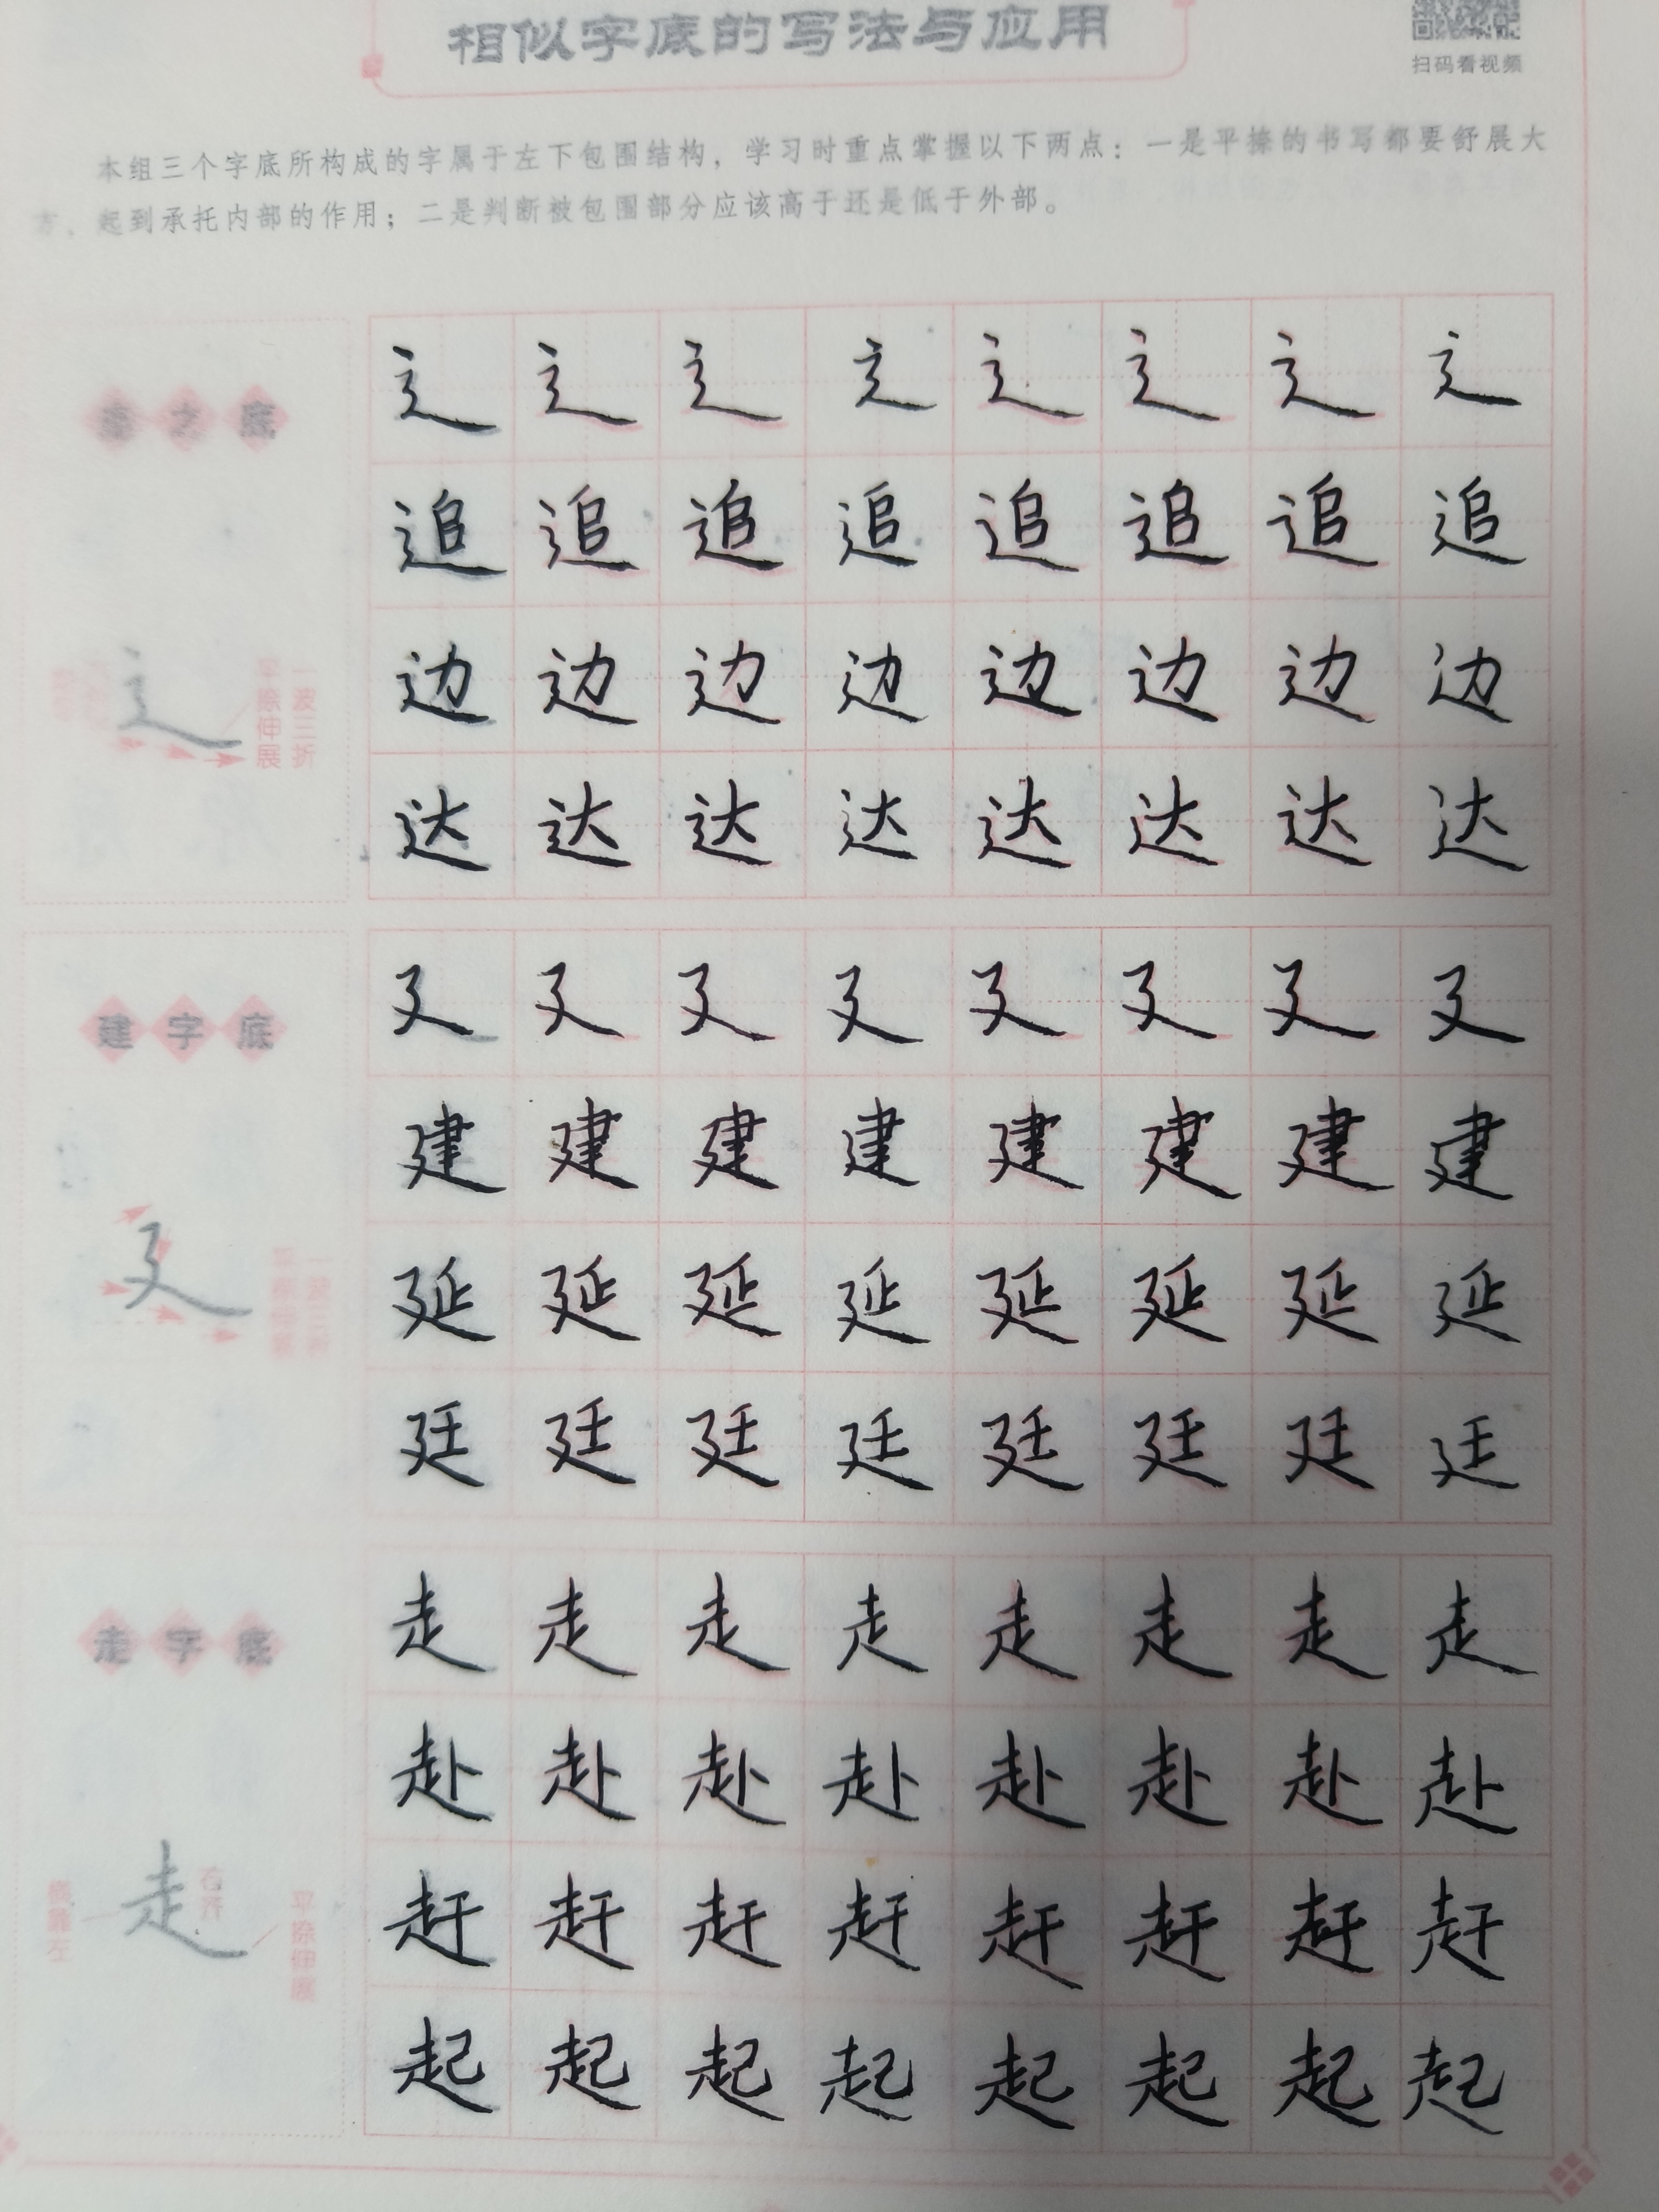 相似字底的写法与应用
扫码看视频
本组三个字底所构成的字属于左下包围结构，学习时重点掌握以下两点：一是平捺的书写都要舒展大
方，起到承托内部的作用；二是判断被包围部分应该高于还是低于外部。
走之底
辶 辶 辶 辶 辶 辶 辶 辶
追 追 追 追 追 追 追 追
辶
一波三折
平捺伸展
边 边 边 边 边 边 边 边
达 达 达 达 达 达 达 达
建字底
廴 廴 廴 廴 廴 廴 廴 廴
建 建 建 建 建 建 建 建
廴
延 延 延 延 延 延 延 延
廷 廷 廷 廷 廷 廷 廷 廷
走字底
走 走 走 走 走 走 走 走
赴 赴 赴 赴 赴 赴 赴 赴
走
右齐
平捺伸展
赶 赶 赶 赶 赶 赶 赶 赶
起 起 起 起 起 起 起 起